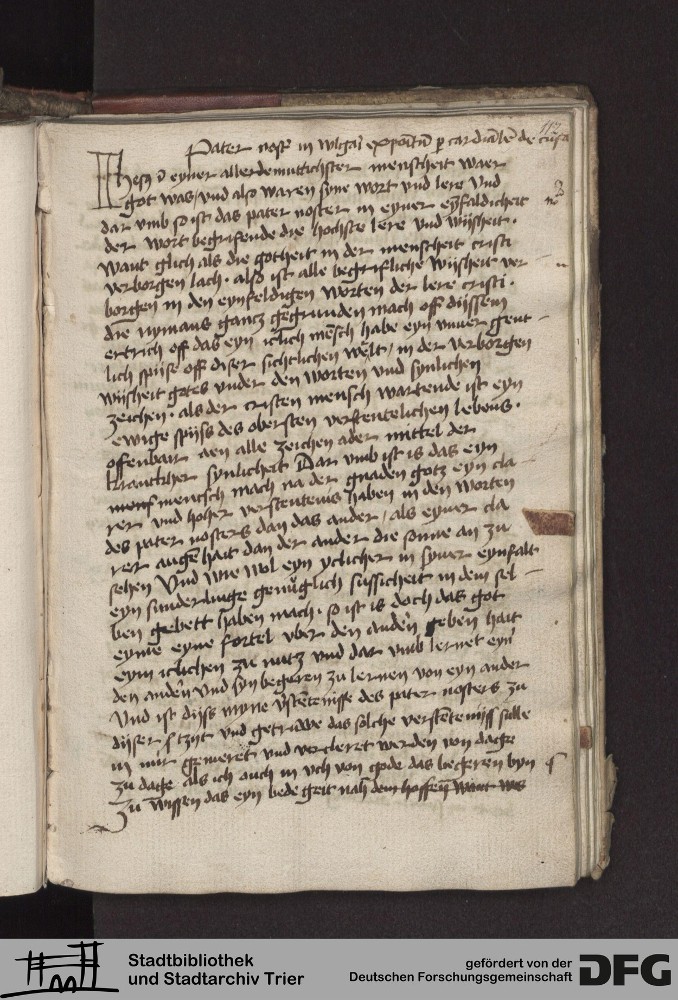 Pater nost' in wlgari expositum p cardinale de cusa
Jhesus in eyner allerdemuttichster menscheit waer
got was / vnd also waren syne wort vnd lere vnd
dar vmb so ist das pater noster in eyner eyfaldicheit
der wort begrifende die hochste lere vnd wijsheit .
Want glich als die gotheit in der menscheit cristi
verborgen lach . also ist alle begrifliche wijsheit ver
borgen in den eynfeldigen worten der lere cristi .
die nymans gancz gegrunden mach off dijssem
ertrich off das eyn iclich mesch habe eyn
lich spijse off diser sichtlichen welt / in der verborgen
wijsheit gotes vnder den worten vnd synlichen
zeichen . als der cristen mensch wartende ist eyn
ewige spijss des obersten verstentelichen lebens .
offenbair aen alle zeichen ader mittel der
synlicheit Dar vmb ist is das eyn
mensch mach na der gnaden gotz eyn cla
rer vnd hoher verstentenis haben in den worten
des pater nosters dan das ander / als eyner cla
rer auge hait dan der ander die sonne an zu
sehen Vnd wie wol eyn yclicher in syner eynfalt
eyn sunderlinge genuglich sussicheit in dem sel
ben gebett haben mach . so ist is doch das got
eyme eyne fortel vber den anden geben hait
eym iclichen zu nutz vnd dar vmb lernet eyn
den anden vnd syn begeren zu lernen von eyn ander
Vnd ist dijss myne vstetenisse des pater nosters zu
dijser stzijt vnd getruwe das solche verstetenijss sulle
in mir gemeret vnd vercleret werden von dage
zu dage als ich auch in vch von gode das begeren byn
Zu wissen das eyn bede geit nah dem hoffen want was
Stadtbibliothek
und Stadtarchiv Trier
gefördert von der
Deutschen Forschungsgemeinschaft
DFG